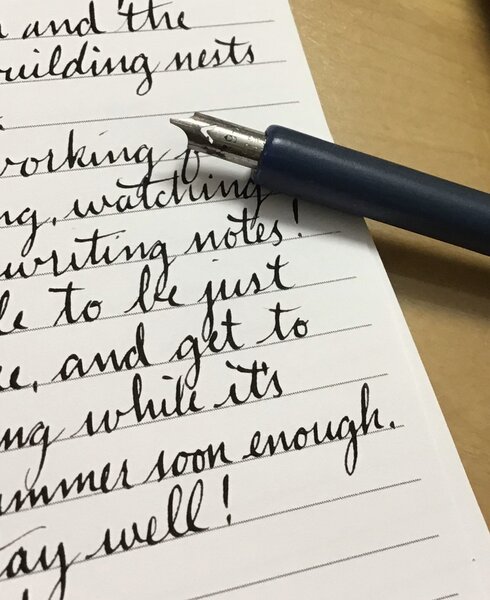 and the
uilding nests
orking
ng, watching
writing notes!
le to be just
e, and get to
ng while it's
mmer soon enough.
ay well!